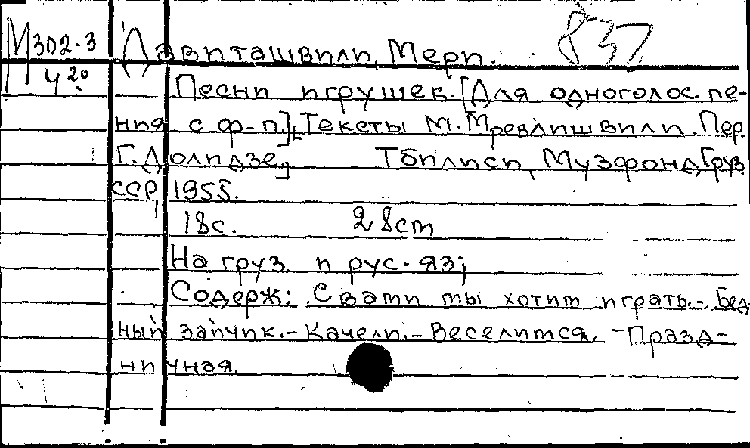 М302.3 Давиташвили, Мери. 837
Ч20
Песни игрушек. [Для одноголос. пе-
ния с ф-п], [Тексты М. Мревлишвили. Пер.
Г. Долидзе] Тбилиси, Музфонд Груз
ССР, 1955.
18с. 28cm
На груз. и рус. яз;
Содерж: С вами мы хотим играть. - Бед
ный зайчик. - Качели. - Веселимся. - Празд-
ничная.